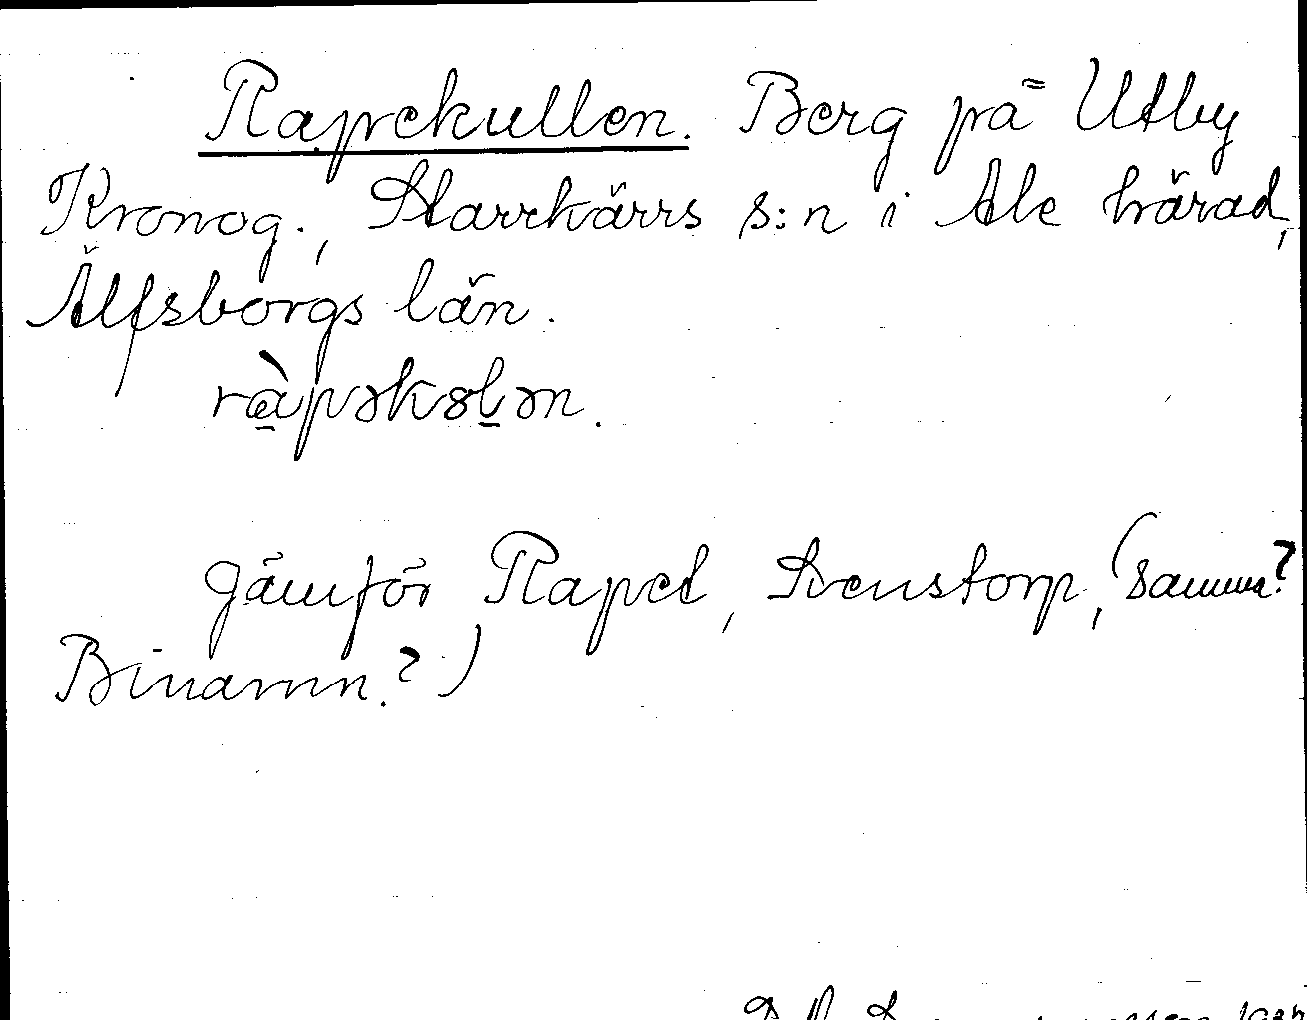 Rapekullen. Berg på Utby
Kronog., Starrkärrs s:n i Ale härad,
Älfsborgs län.
ràpəkələn.
Jämför Rapet, Svenstorp, (samma?
Binamn.?)